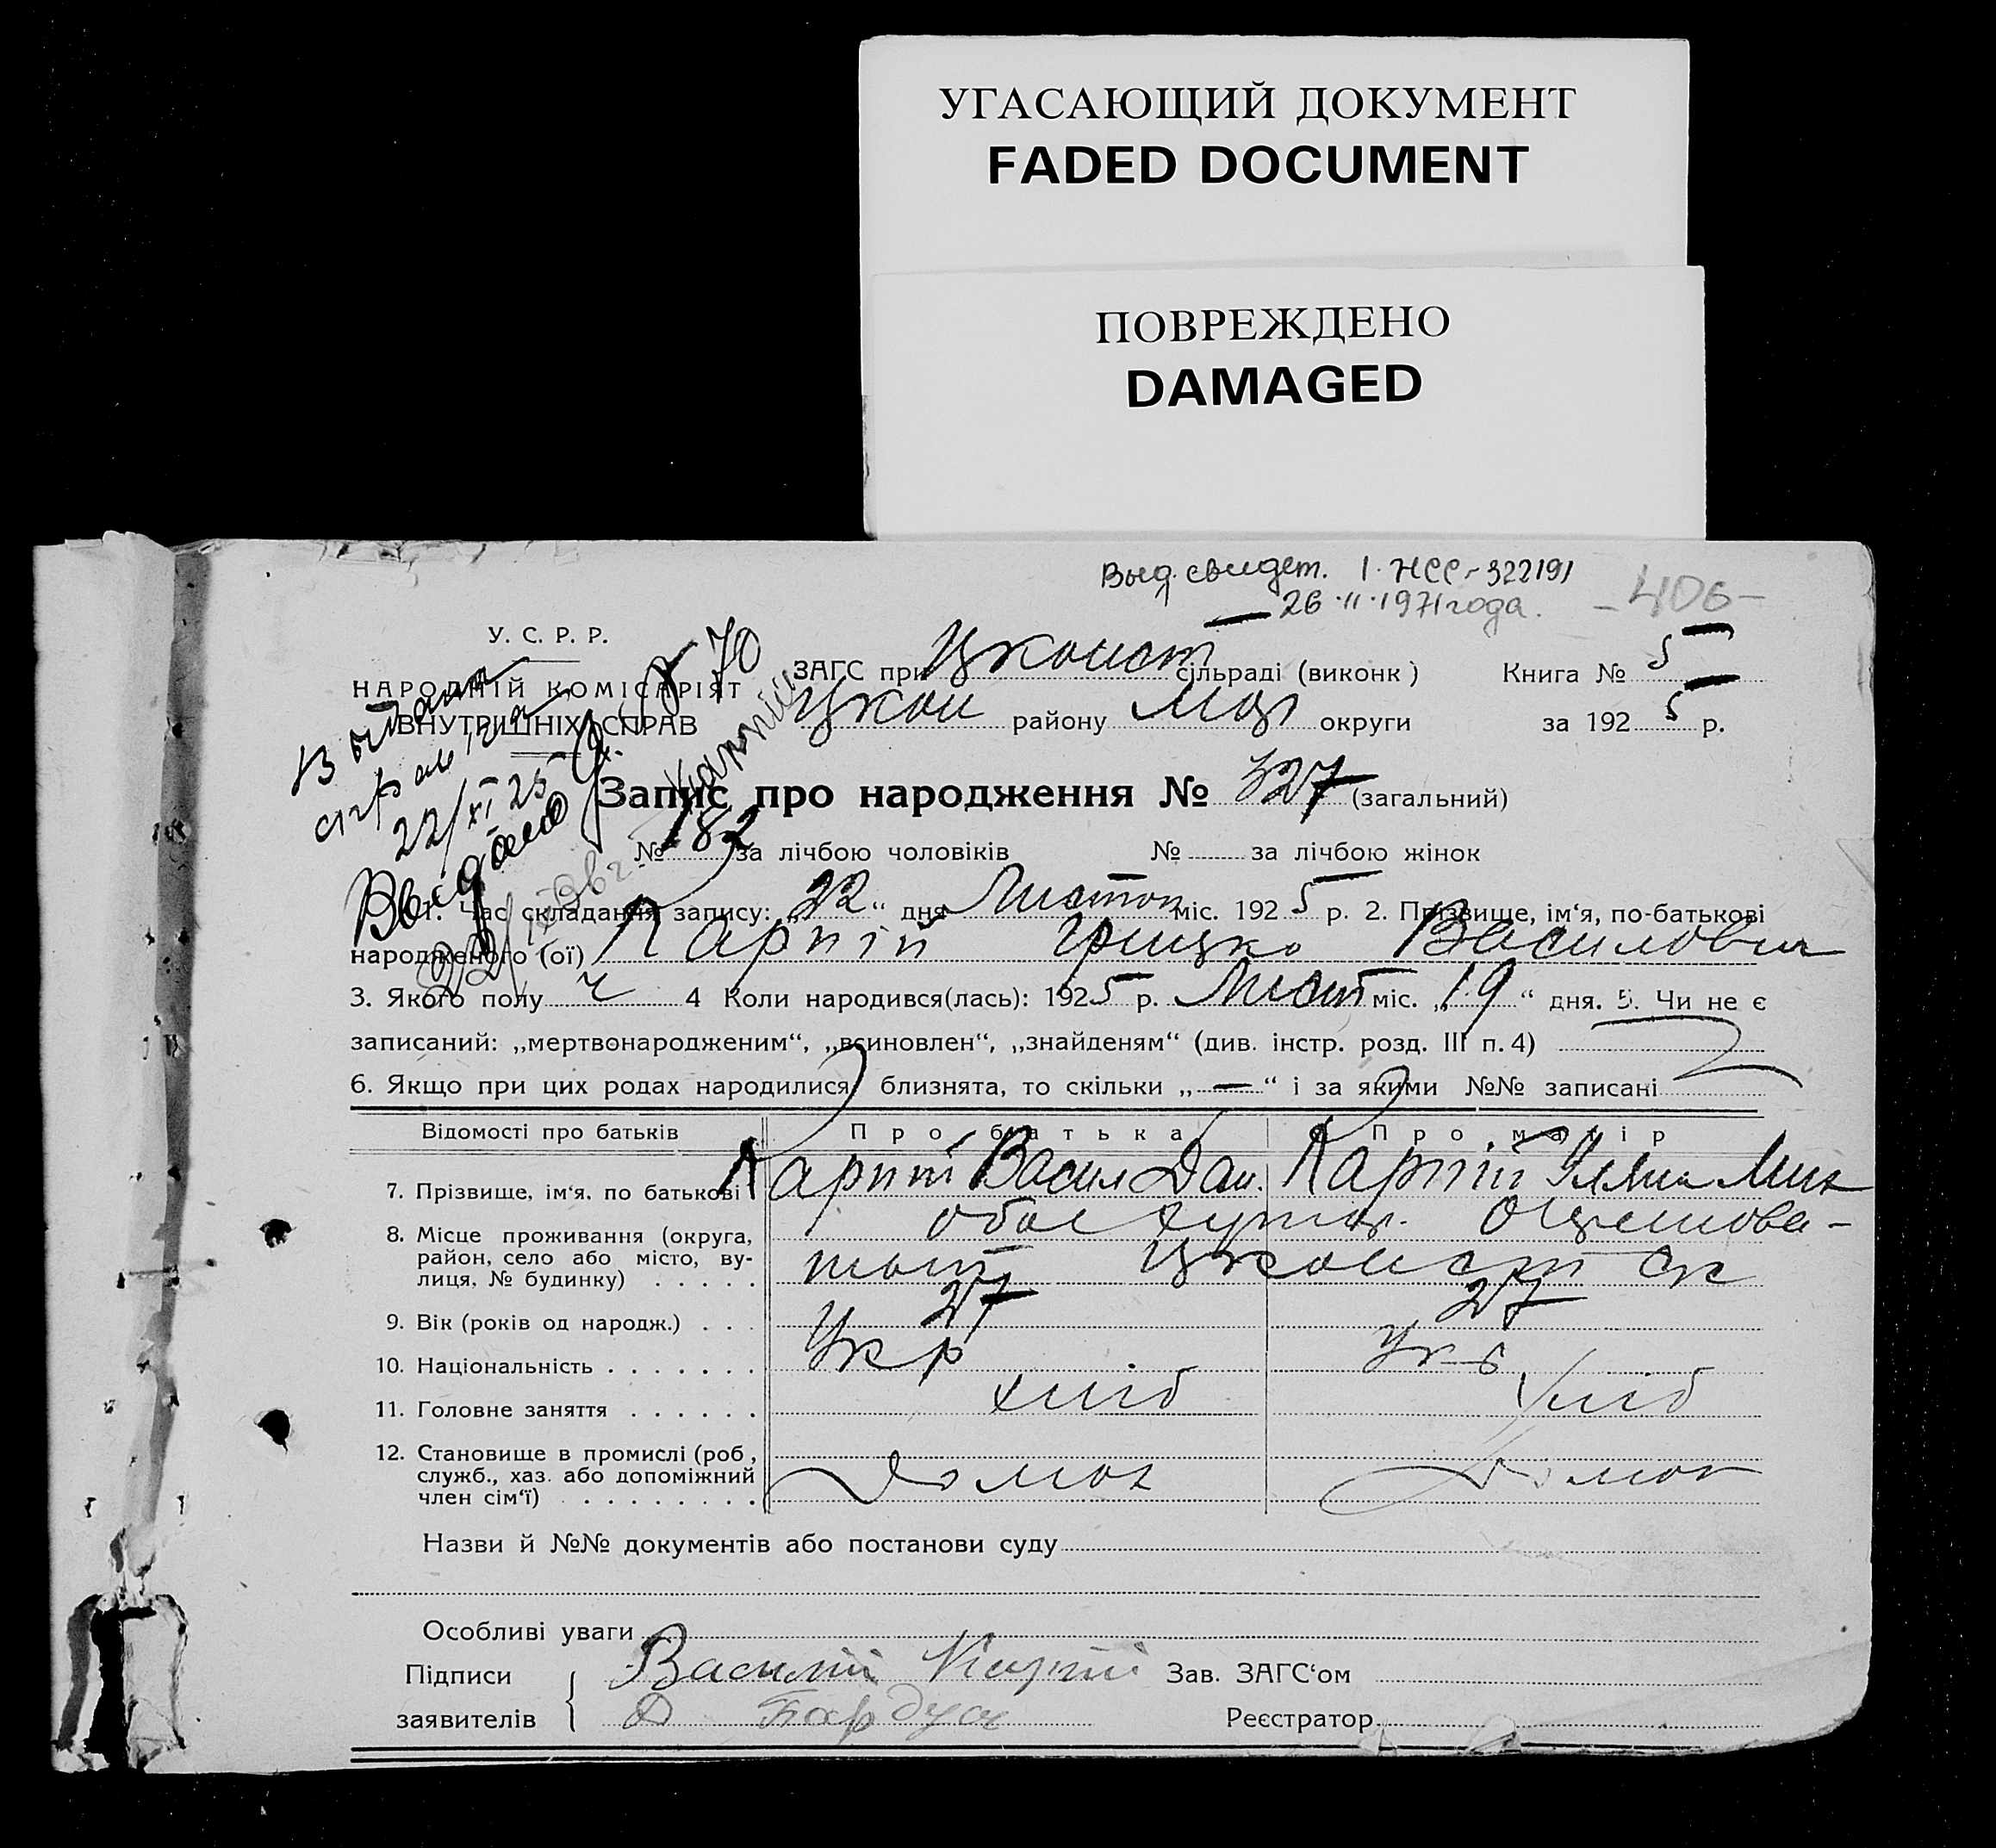 УГАСАЮЩИЙ ДОКУМЕНТ
FADED DOCUMENT
ПОВРЕЖДЕНО
DAMAGED
Выд. свидет. 1-НСС-322191
26·II·1971 года. -406-
У. С. Р. Р.
НАРОДНІЙ КОМІСАРІЯТ
ВНУТРІШНІХ СПРАВ
22/XI 25
Выдано
70
182
ЗАГС при Цконст сільраді (виконк) Книга № 5
Цкон району округи за 192 5 р.
Запис про народження № 327 (загальний)
№ 182 за лічбою чоловіків № за лічбою жінок
1. Час складання запису: „22“ дня Листоп міс. 192 5 р. 2. Прізвище, ім‘я, по-батькові
народженого (ої) Карпій Грицко Василович
3. Якого полу ч 4 Коли народився(лась): 192 5 р. Лист міс. „19“ дня. 5. Чи не є
записаний: „мертвонародженим“, „всиновлен“, „знайденям“ (див. інстр. розд. III п. 4)
6. Якщо при цих родах народилися близнята, то скільки „—“ і за якими №№ записані
Відомості про батьків Про батька Про матір
7. Прізвище, ім‘я, по батькові Карпій Васил Дан. Карпій Мик
8. Місце проживання (округа,
район, село або місто, ву-
лиця, № будинку)
9. Вік (років од народж.) 27 27
10. Національність Укр Укр
11. Головне заняття хліб хліб
12. Становище в промислі (роб.,
служб., хаз. або допоміжний
член сім‘ї) домог домог
Назви й №№ документів або постанови суду
Особливі уваги
Підписи Василій Карпій Зав. ЗАГС‘ом
заявителів Реєстратор